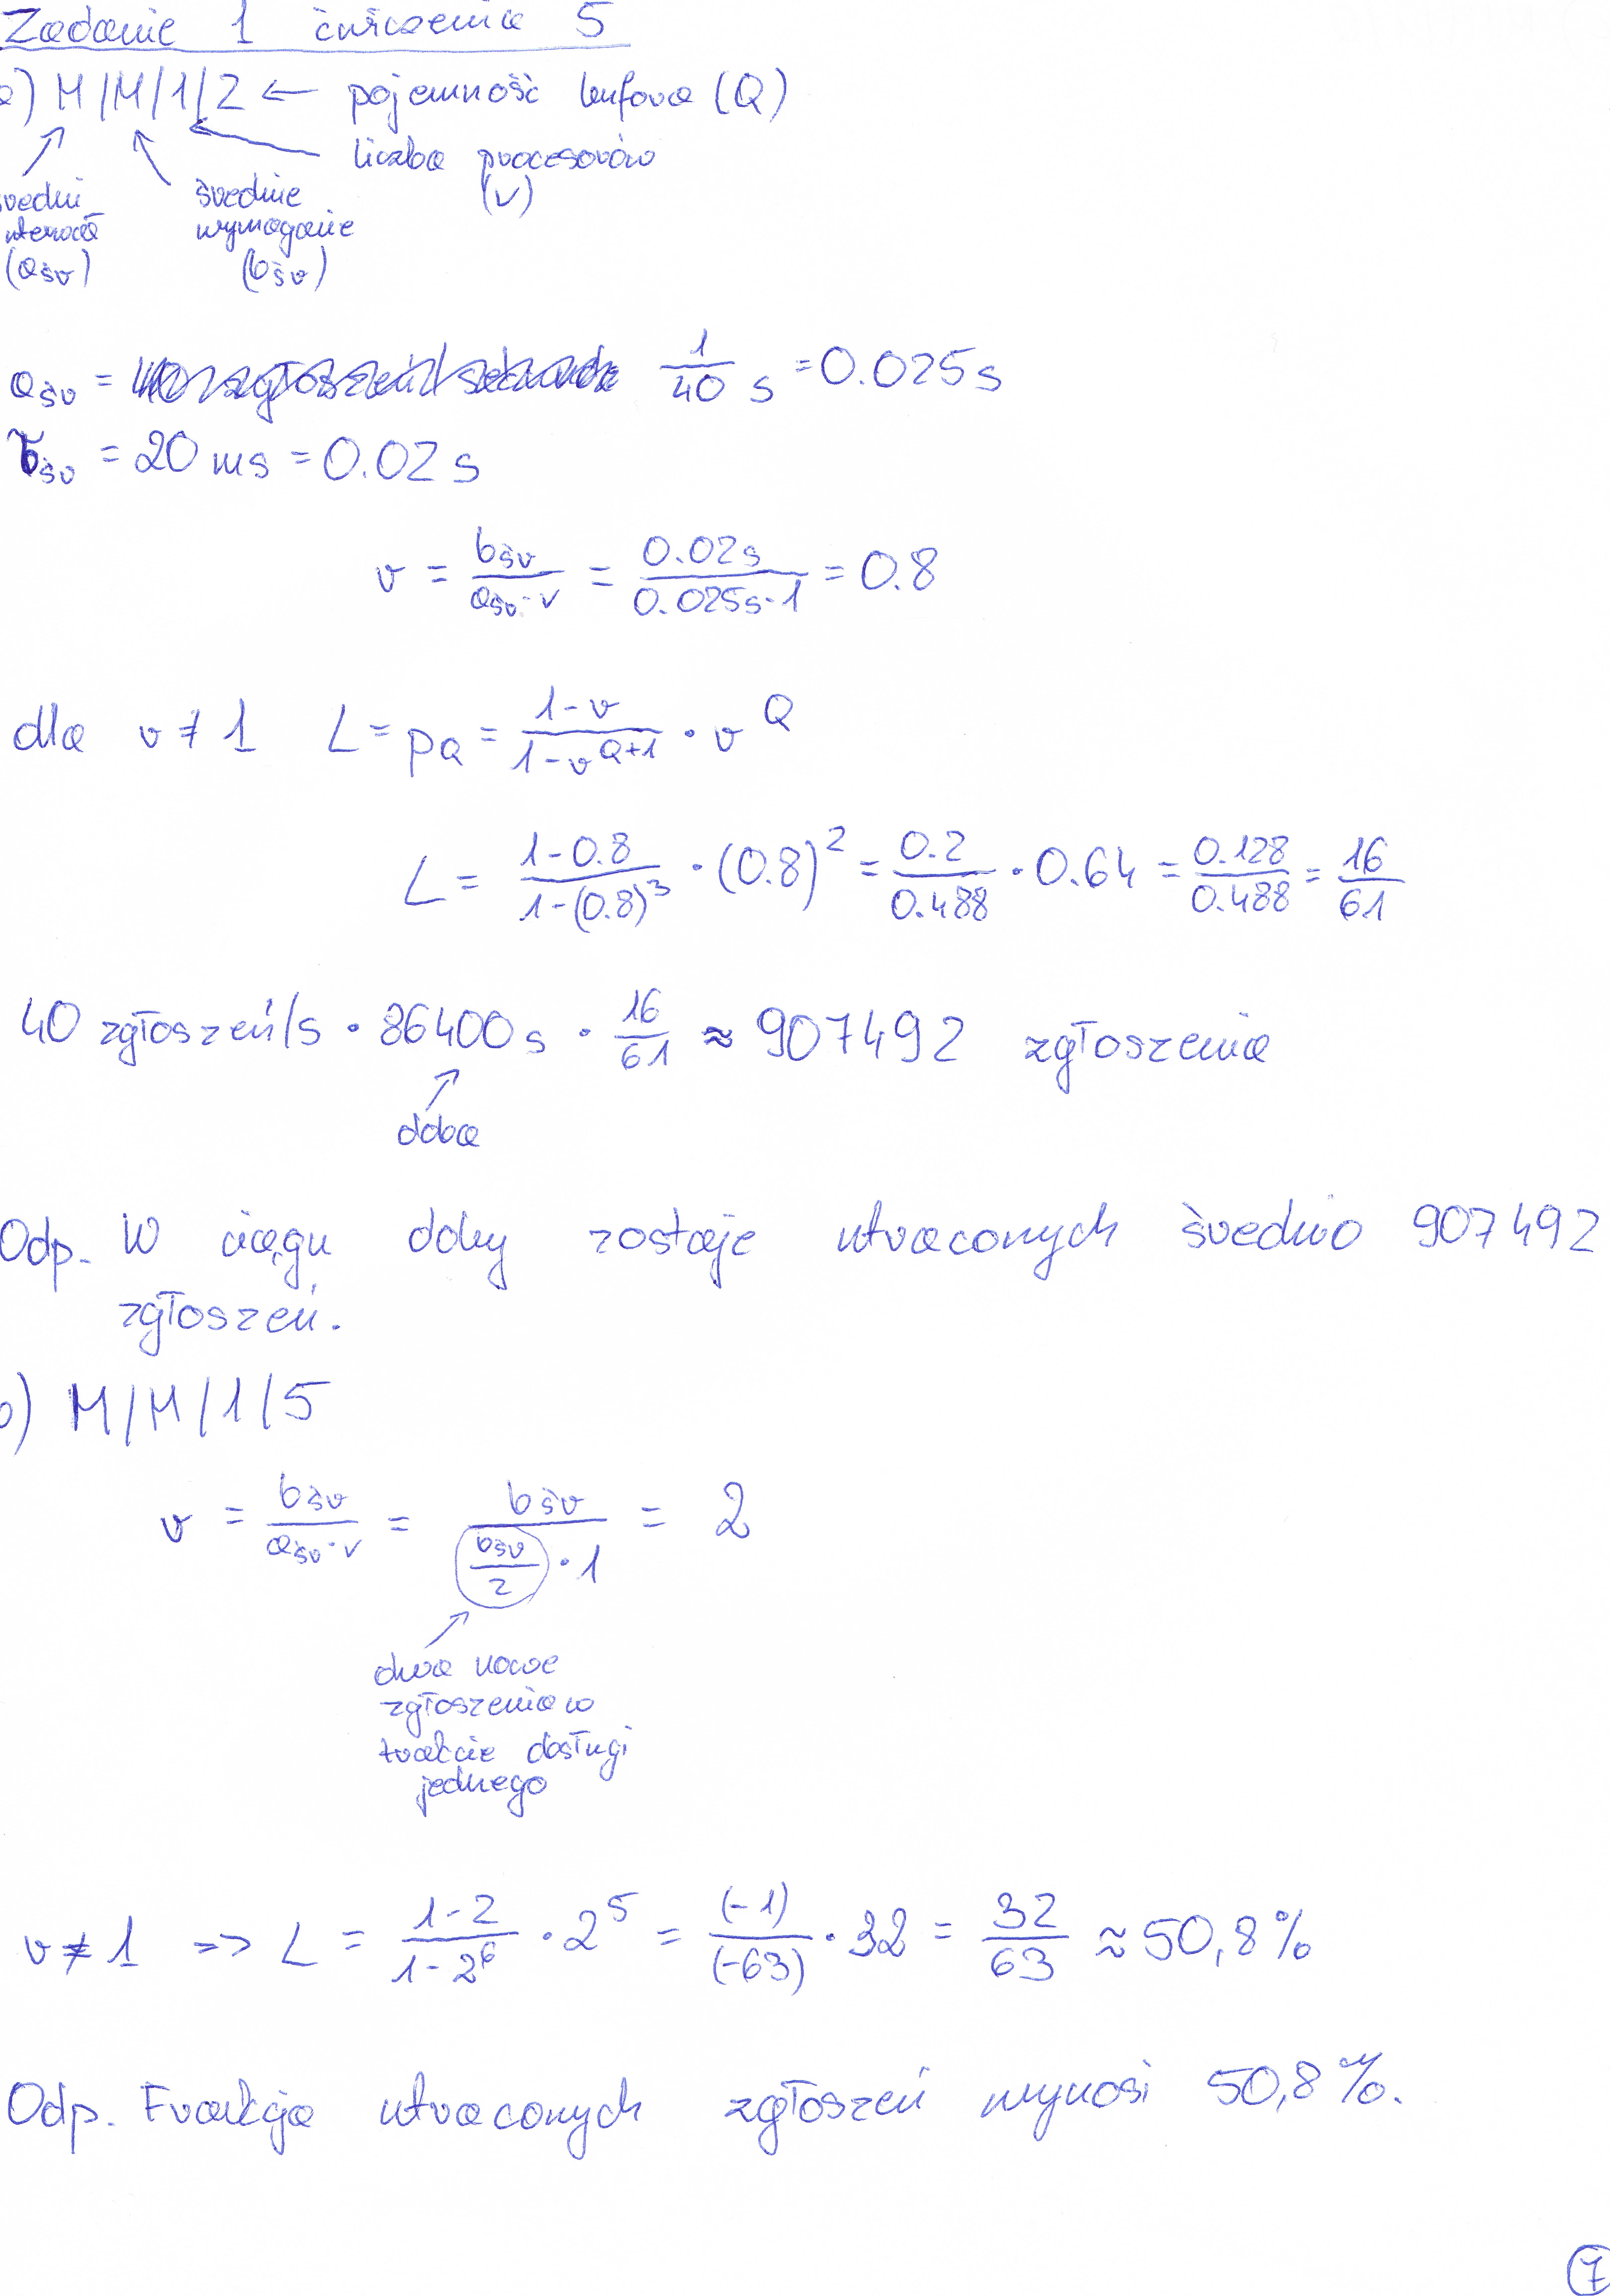 Zadanie 1 ćwiczenia 5
a) M/M/1/2 ← pojemność bufora (Q)
liczba procesorów
(V)
średni
interwał
(aśr)
średnie
wymaganie
(bśr)
aśr = 1/40 s = 0.025s
bśr = 20 ms = 0.02 s
r = bśr/(aśr·V) = 0.02s/(0.025s·1) = 0.8
dla r ≠ 1 L = pQ = (1-r)/(1-r^(Q+1)) · r^Q
L = (1-0.8)/(1-(0.8)^3) · (0.8)^2 = 0.2/0.488 · 0.64 = 0.128/0.488 = 16/61
40 zgłoszeń/s · 86400s · 16/61 ≈ 907492 zgłoszenia
doba
Odp. W ciągu doby zostaje utraconych średnio 907492
zgłoszeń.
b) M/M/1/5
r = bśr/(aśr·V) = bśr/((bśr/2)·1) = 2
dwa nowe
zgłoszenia w
trakcie obsługi
jednego
r ≠ 1 => L = (1-2)/(1-2^6) · 2^5 = (-1)/(-63) · 32 = 32/63 ≈ 50,8%
Odp. Frakcja utraconych zgłoszeń wynosi 50,8%.
7